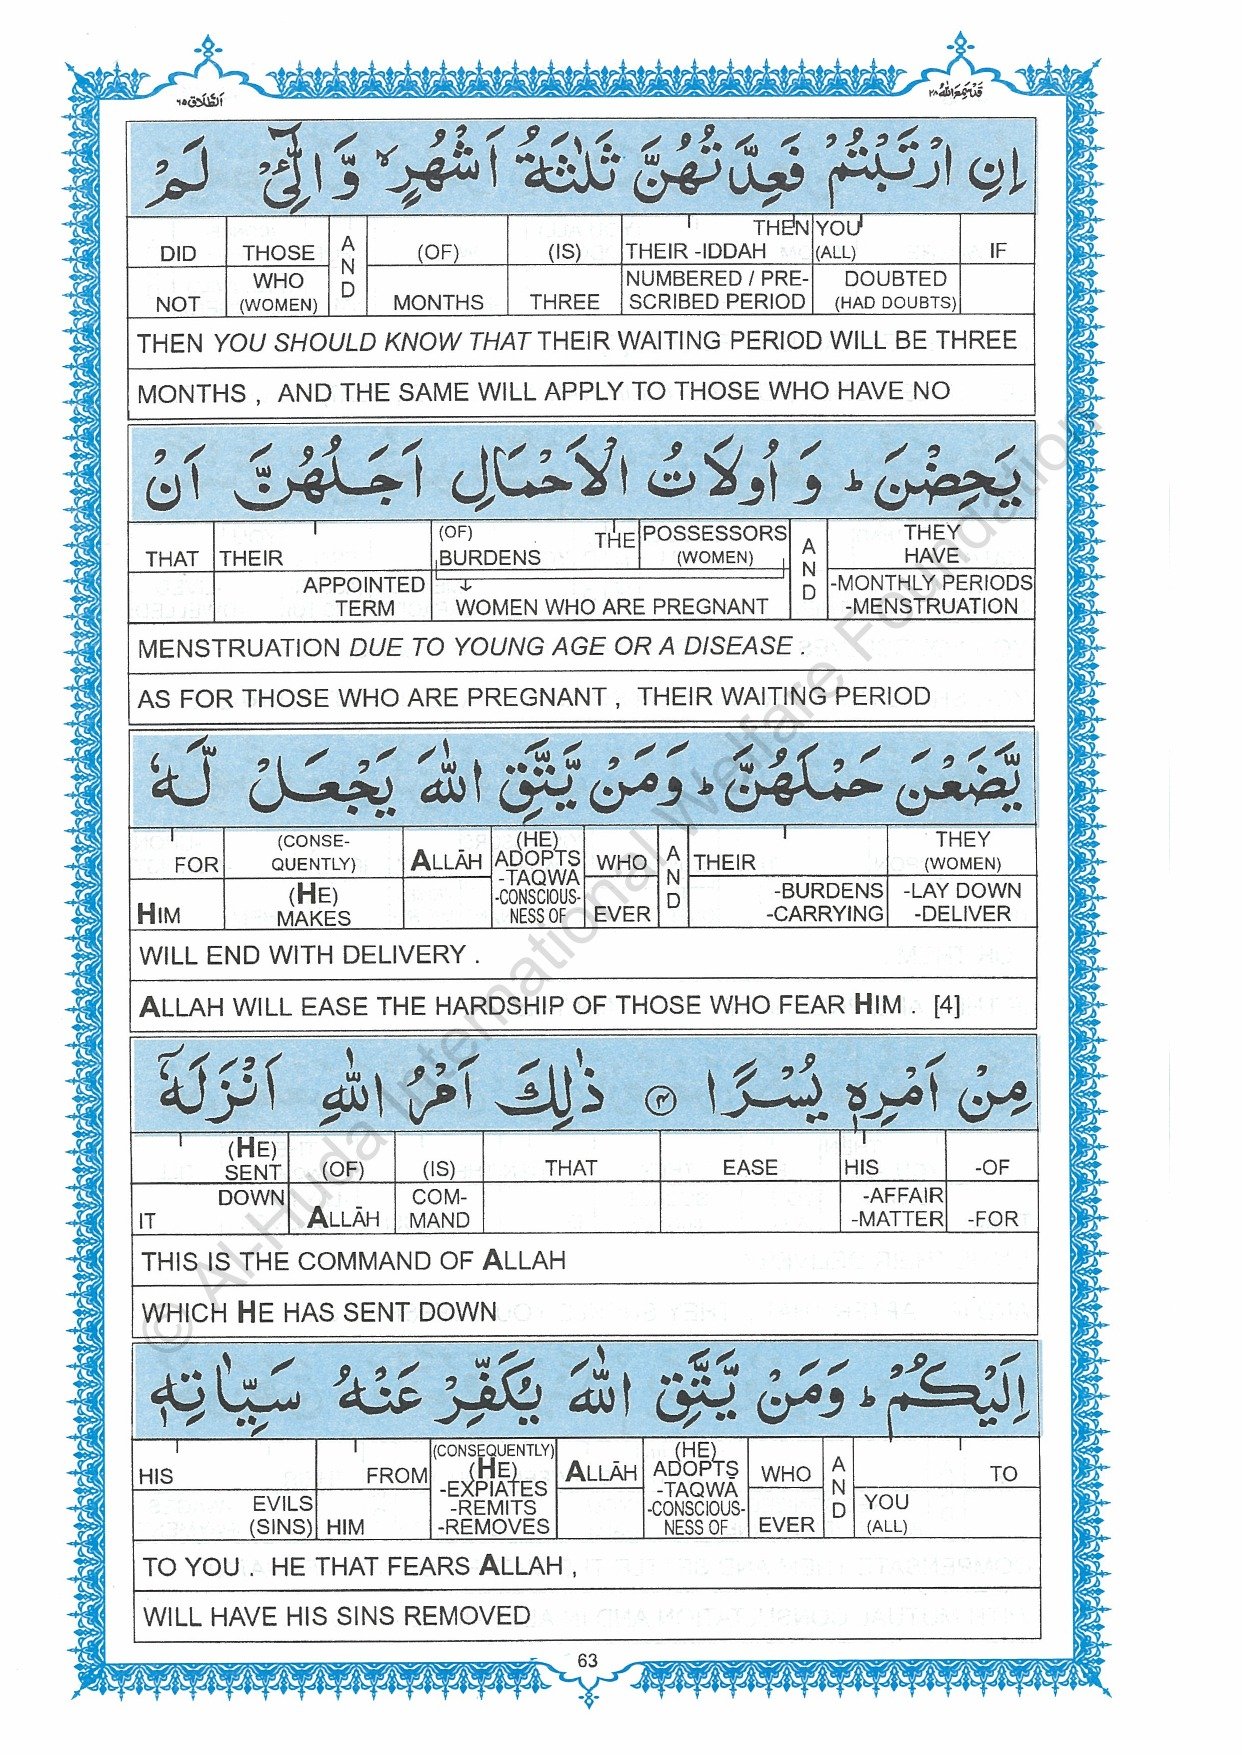 اَلطَّلَاق ٦٥
قَدْ سَمِعَ اللّٰهُ ٢٨
اِنِ ارْتَبْتُمْ فَعِدَّتُهُنَّ ثَلٰثَةُ اَشْهُرٍ ۙ وَّ الّٰٓـِٔیْ لَمْ
DID THOSE AND (OF) (IS) THEN THEIR -IDDAH YOU (ALL) IF
NOT WHO (WOMEN) MONTHS THREE NUMBERED / PRE-SCRIBED PERIOD DOUBTED (HAD DOUBTS)
THEN YOU SHOULD KNOW THAT THEIR WAITING PERIOD WILL BE THREE
MONTHS , AND THE SAME WILL APPLY TO THOSE WHO HAVE NO
یَحِضْنَ ؕ وَ اُولَاتُ الْاَحْمَالِ اَجَلُهُنَّ اَنْ
THAT THEIR (OF) BURDENS THE POSSESSORS (WOMEN) AND THEY HAVE
APPOINTED TERM ↓ WOMEN WHO ARE PREGNANT -MONTHLY PERIODS -MENSTRUATION
MENSTRUATION DUE TO YOUNG AGE OR A DISEASE .
AS FOR THOSE WHO ARE PREGNANT , THEIR WAITING PERIOD
یَّضَعْنَ حَمْلَهُنَّ ؕ وَمَنْ یَّتَّقِ اللّٰهَ یَجْعَلْ لَّهٗ
FOR (CONSE-QUENTLY) ALLĀH (HE) ADOPTS -TAQWA -CONSCIOUS-NESS OF WHO AND THEIR THEY (WOMEN)
HIM (HE) MAKES EVER -BURDENS -CARRYING -LAY DOWN -DELIVER
WILL END WITH DELIVERY .
ALLAH WILL EASE THE HARDSHIP OF THOSE WHO FEAR HIM . [4]
مِنْ اَمْرِهٖ یُسْرًا ۴ ذٰلِكَ اَمْرُ اللّٰهِ اَنْزَلَهٗۤ
(HE) SENT (OF) (IS) THAT EASE HIS -OF
IT DOWN ALLĀH COM-MAND -AFFAIR -MATTER -FOR
THIS IS THE COMMAND OF ALLAH
WHICH HE HAS SENT DOWN
اِلَیْكُمْ ؕ وَمَنْ یَّتَّقِ اللّٰهَ یُكَفِّرْ عَنْهُ سَیِّاٰتِهٖ
HIS FROM (CONSEQUENTLY) (HE) -EXPIATES -REMITS -REMOVES ALLĀH (HE) ADOPTS -TAQWA -CONSCIOUS-NESS OF WHO AND TO
EVILS (SINS) HIM EVER YOU (ALL)
TO YOU . HE THAT FEARS ALLAH ,
WILL HAVE HIS SINS REMOVED
63
© Al-Huda International Welfare Foundation